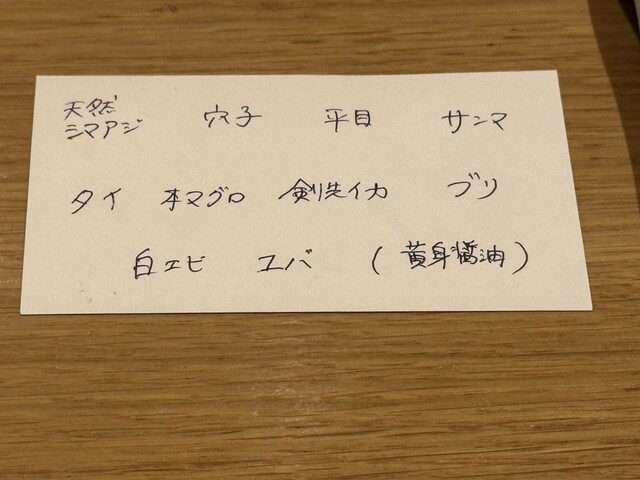 天然
シマアジ 穴子 平目 サンマ
タイ 本マグロ 剣先イカ ブリ
白エビ ユバ (黄身醤油)